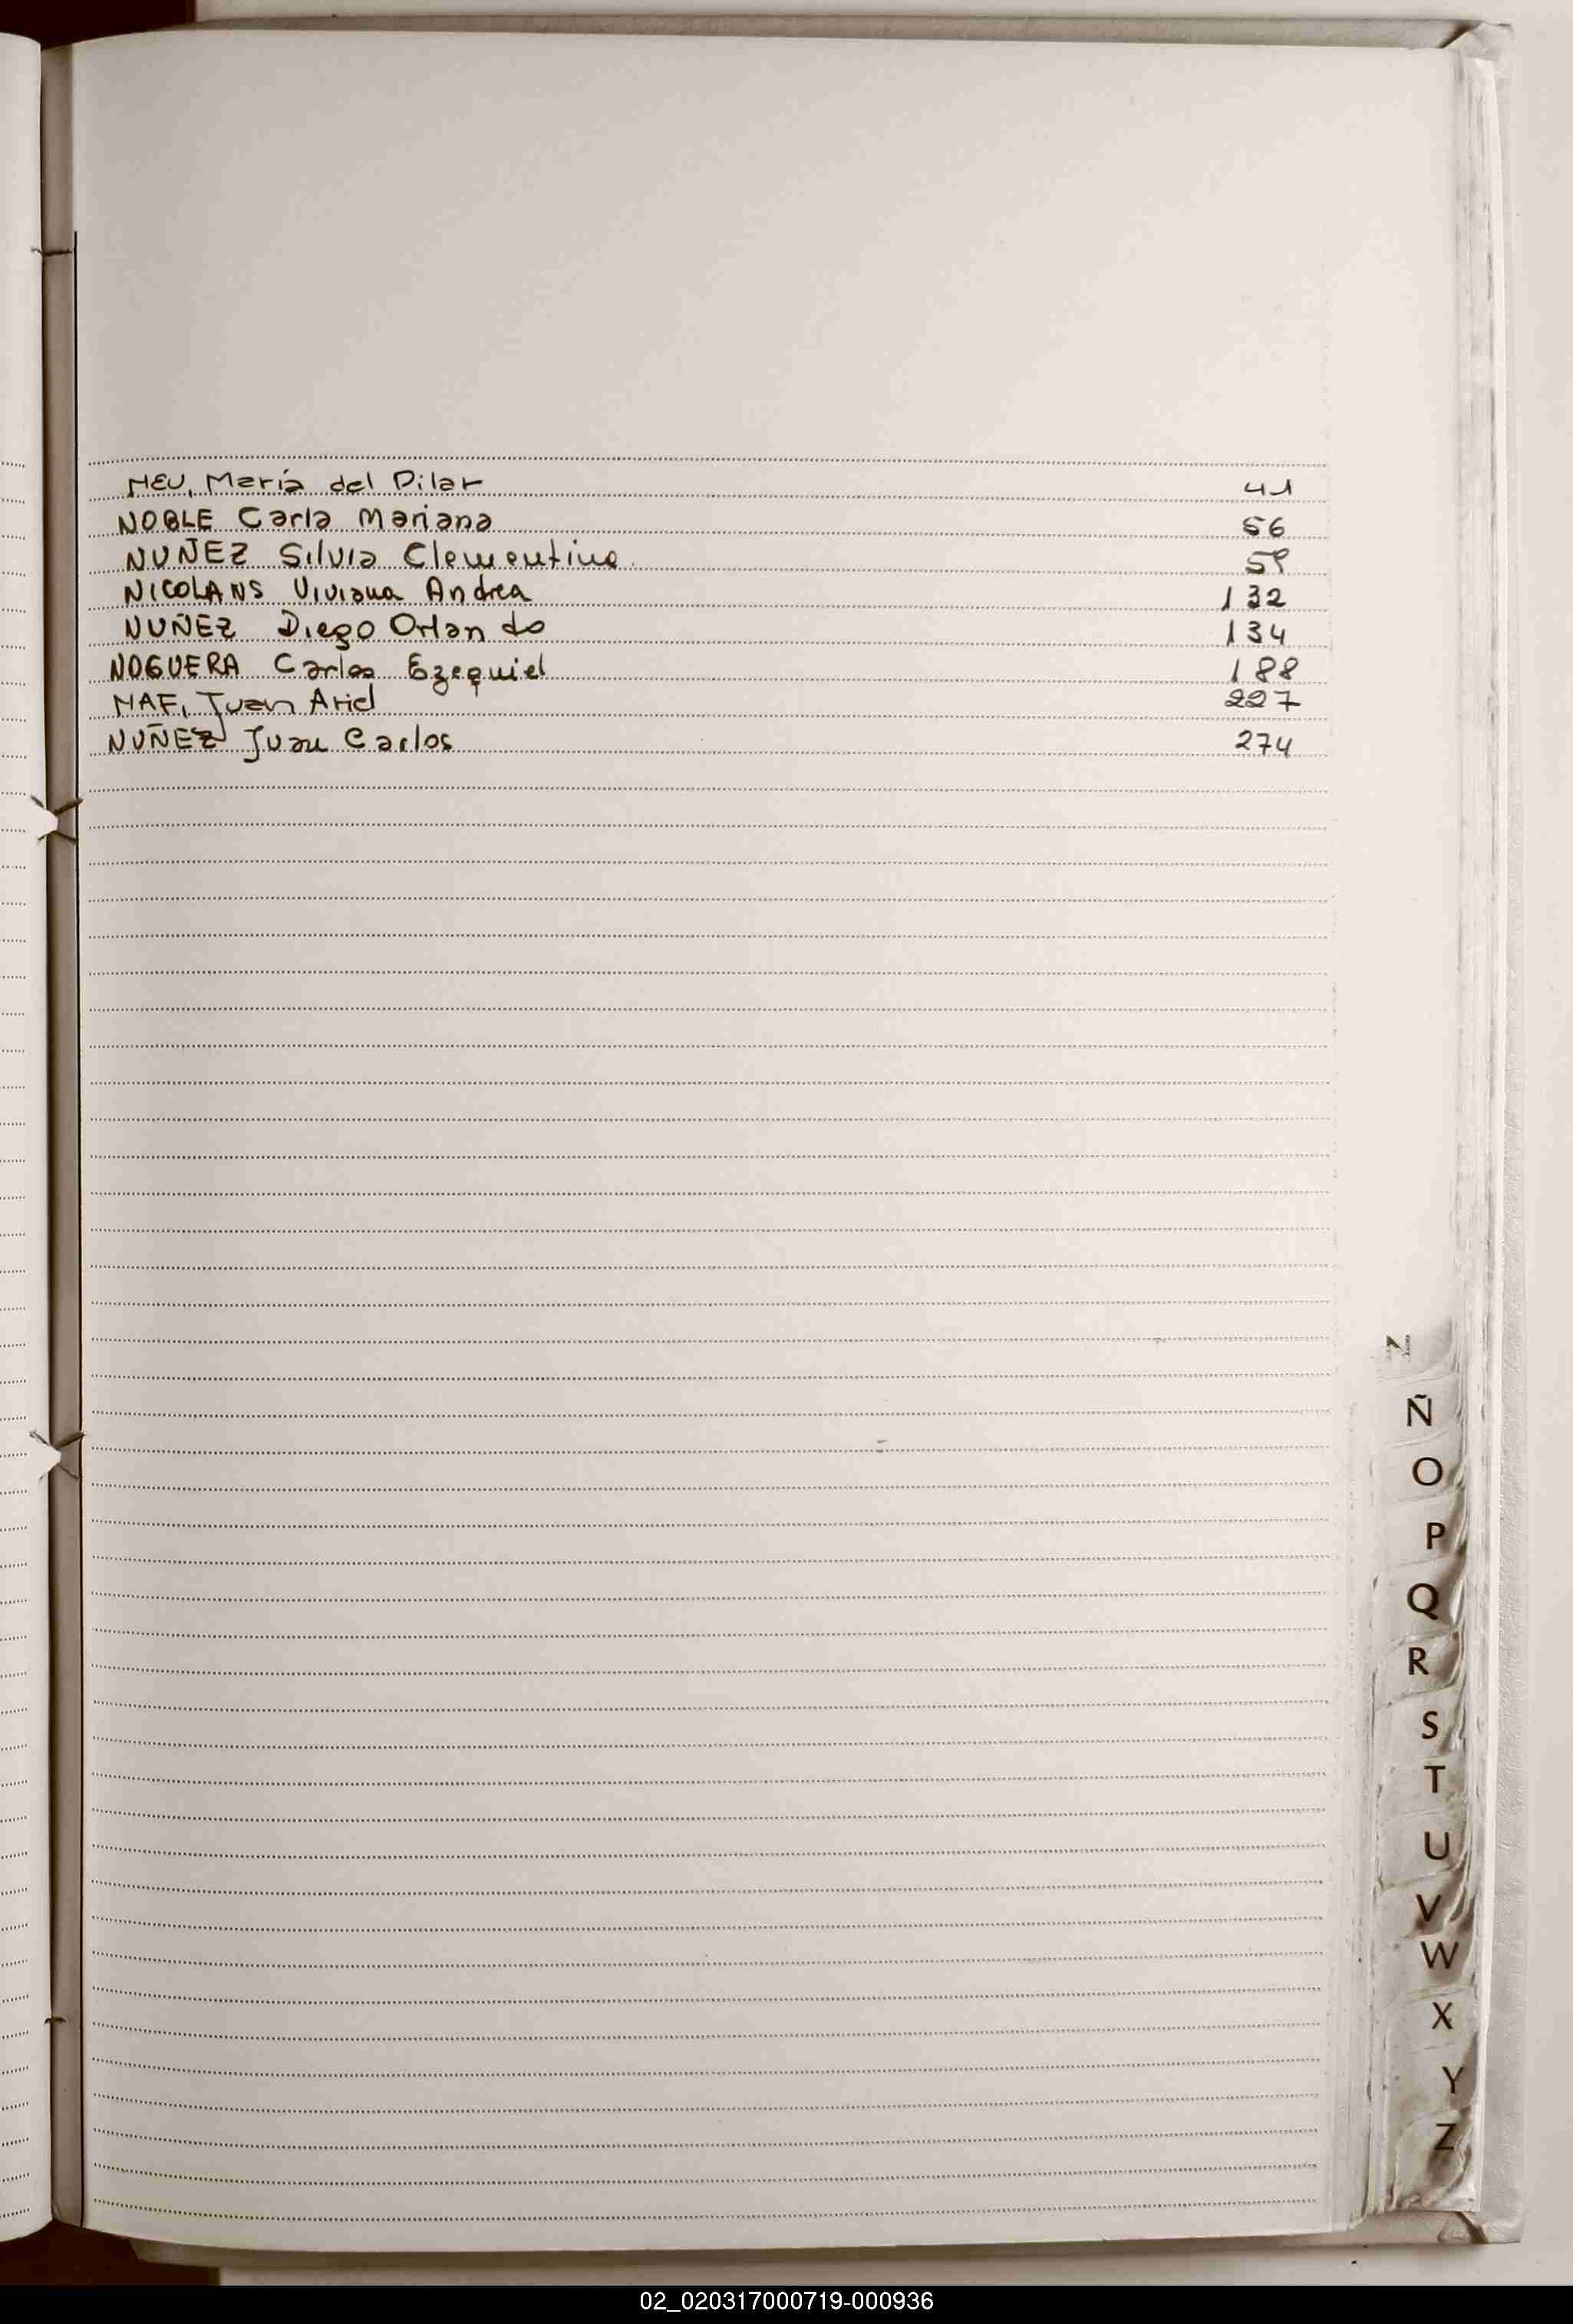 NEU, María del Pilar 41
NOBLE Carla Mariana 56
NUÑEZ Silvia Clementina 59
NICOLANS Viviana Andrea 132
NUÑEZ Diego Orlando 134
NOGUERA Carlos Ezequiel 188
NAF, Juan Ariel 227
NUÑEZ Juan Carlos 274
N
Ñ
O
P
Q
R
S
T
U
V
W
X
Y
Z
02_020317000719-000936